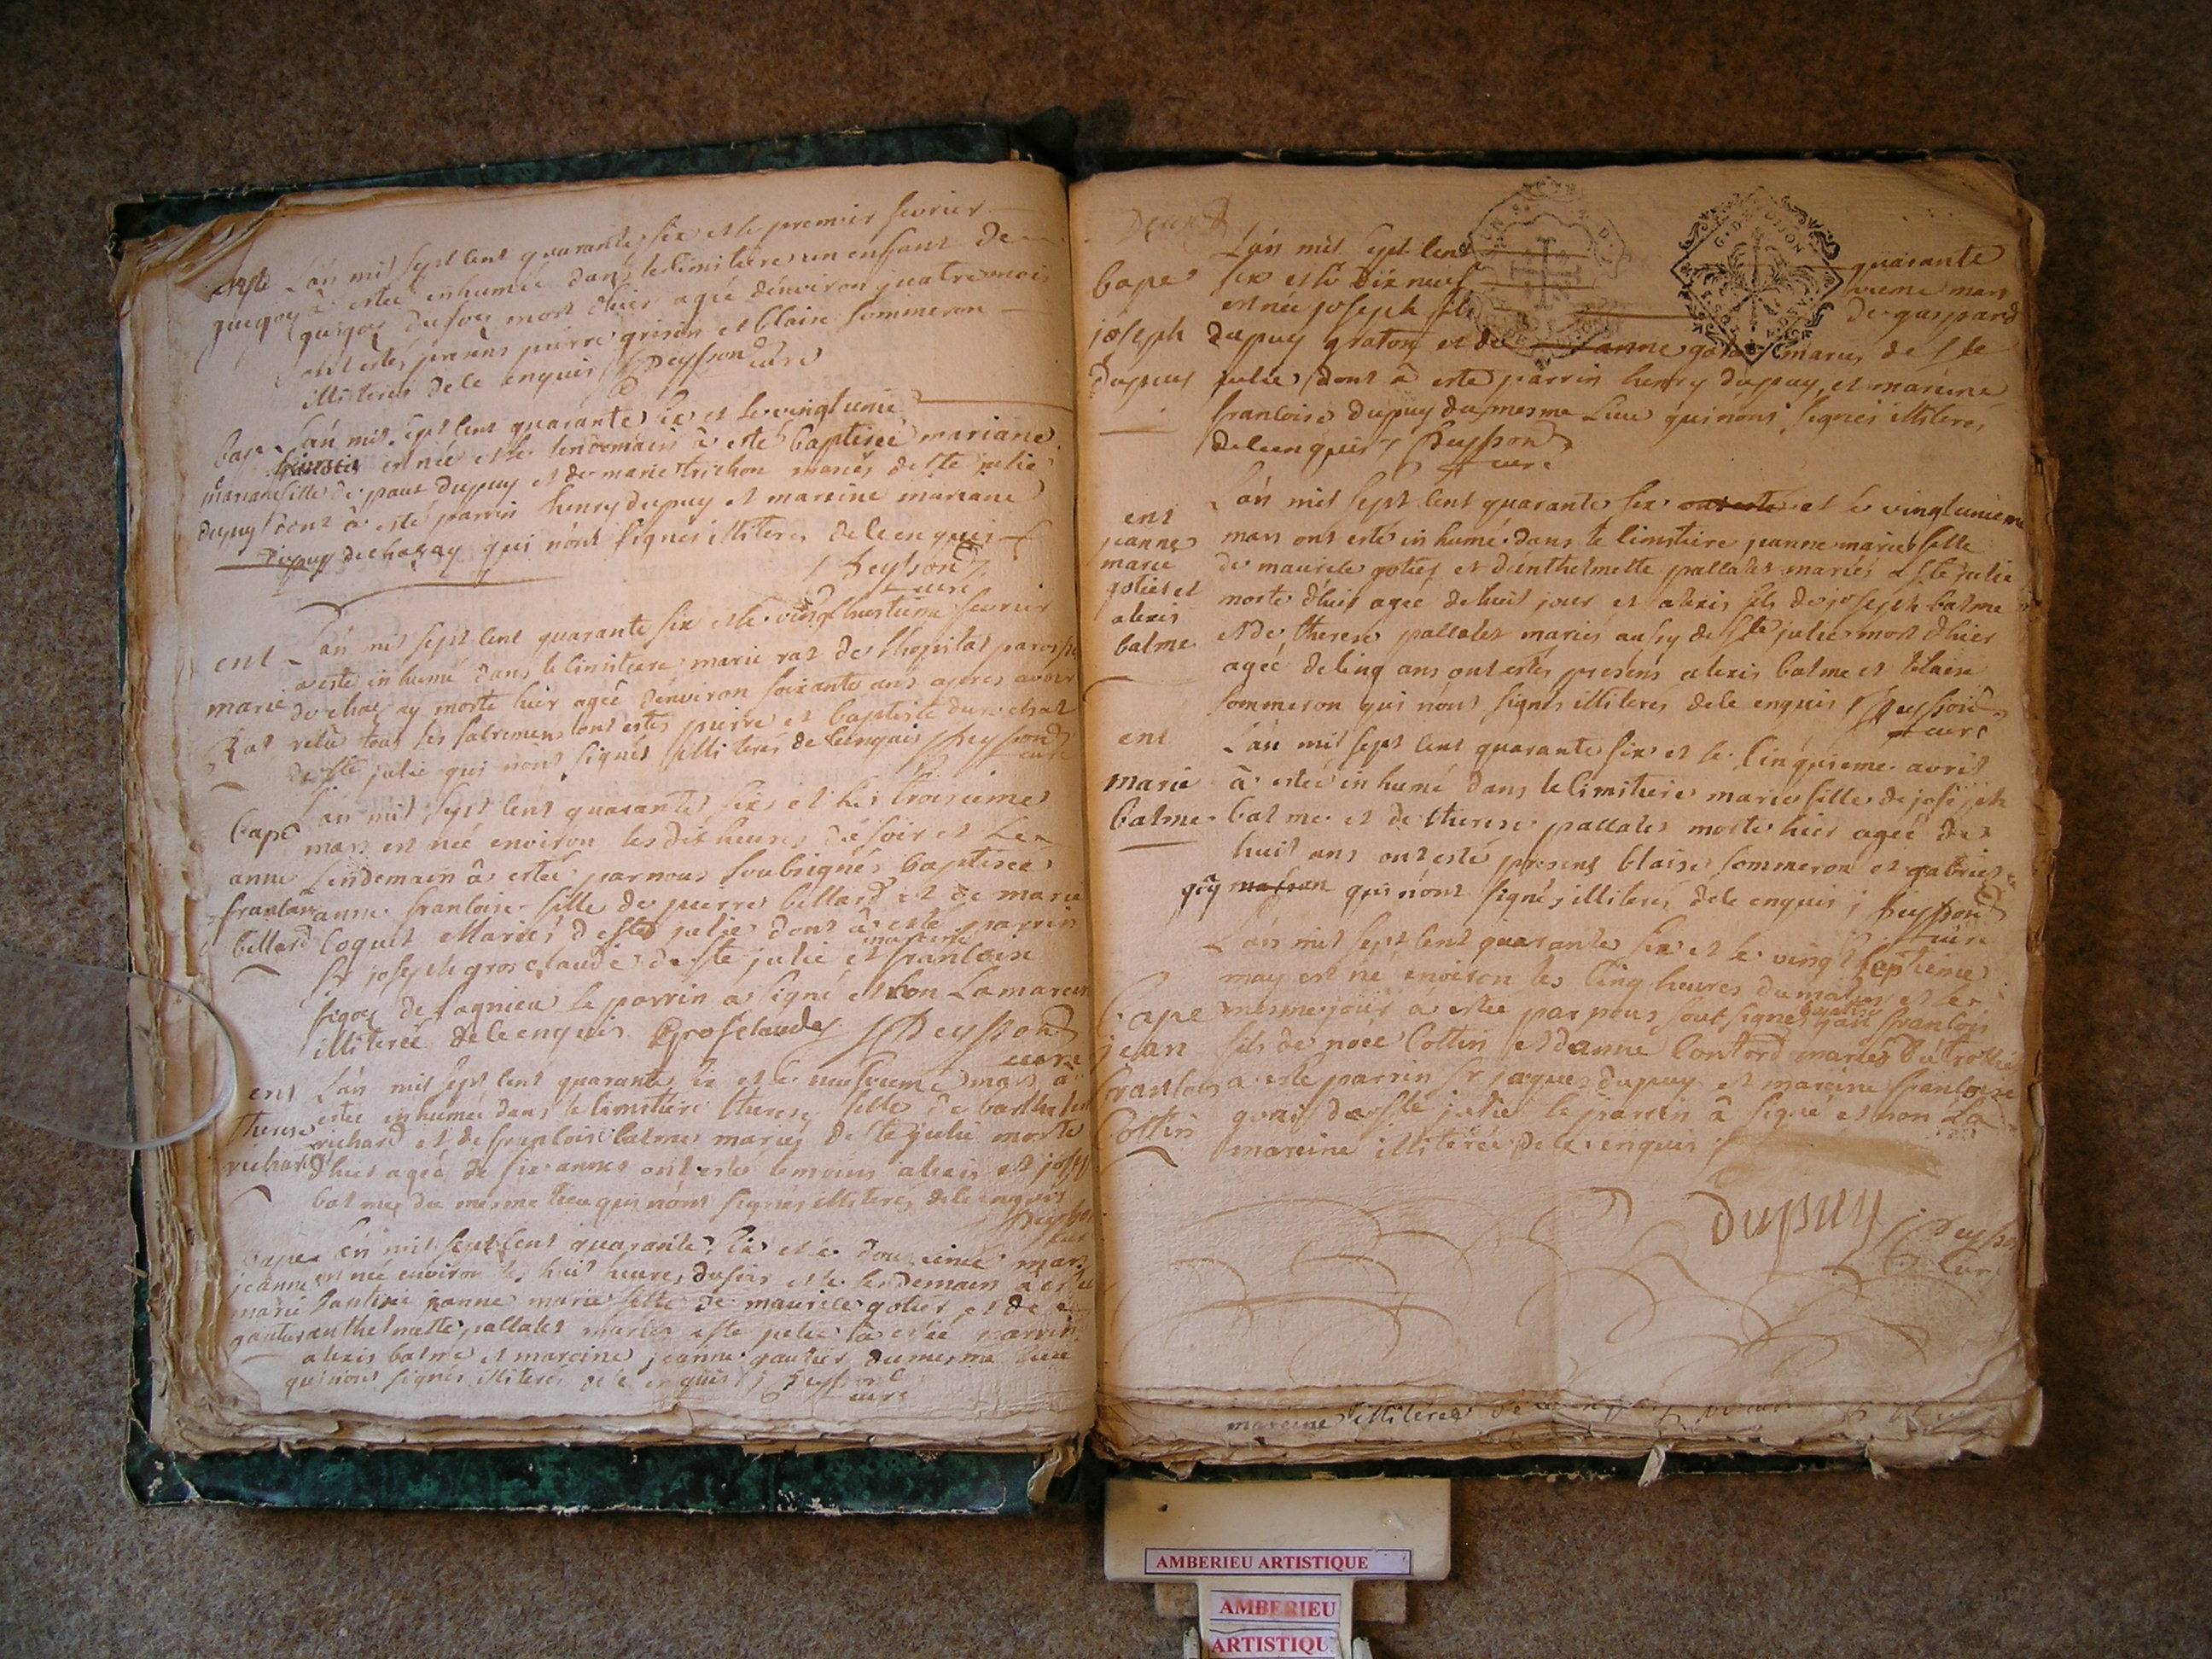 Lán mil sept cent quarante six et le premier fevrier
à estée inhumée dans le cimitiere un enfant de
guigoz du foir mort dhier agée denviron quatre mois
ont estes presens pierre grisin et blaise sommeron
illiterés de ce enquis Peysson curé
bap Lán mil sept cent quarante six et le vingtieme
est née et le lendemain à esté baptisée mariane
mariane fille de paul dupuy et de marie trichon mariés de ste julie
dupuy dont à esté parrin henry dupuy et mareine mariane
dupuy de chazay qui nónt signés illiteres de ce enquis
Peysson
curé
ent Lán mil sept cent quarante six et le vingt huitieme fevrier
a esté inhumé dans le cimitiere marie rat de lhopital paroisse
marie de chazay morte hier agée denviron soixante ans apres avoir
rat reçu tous ses sacremens ont estes pierre et baptiste durochat
de ste julie qui nónt signés illiterés de ce enquis Peysson
curé
Lán mil sept cent quarante six et le troisieme
bape mars est née environ les dix heures de soir et le
anne lendemain à estée par nous soubsignés baptisée
francoise anne francoise fille de pierre bellard et de marie
bellard coquet mariés de ste julie dont à esté parrin
sr joseph grosclaude de ste julie et mareine francoise
figoz de lagnieu le parrin a signé et non la mareine
illiterée de ce enquis Grosclaude Peysson
curé
ent Lán mil sept cent quarante six et le neufvieme mars à
therese estée inhumée dans le cimitiere therese fille de barthelemi
richard richard et de francoise balme mariés de ste julie morte
dhier agée de six annes ont estés temoins alexis et joseph
balme du mesme lieu qui nónt signés illiteres de ce enquis
Peysson
bape Lán mil sept cent quarante six et le douzieme mars
jeanne est née environ les huit heures du soir et le lendemain à esté
marie baptisée jeanne marie fille de maurice gotier et de
gautier anthelmette pallatet mariés de ste julie à esté parrin
alexis balme et mareine jeanne gautier du mesme lieu
qui nont signés illiterés de ce enquis Peysson
curé
Lán mil sept cent quarante
bape six et le dix neufvieme mars
est née joseph fils de gaspard
joseph dupuy graton et de anne mariés de ste
dupuy julie dont à esté parrin henry dupuy et mareine
francoise dupuy du mesme lieu qui nónt signés illiteres
de ce enquis Peysson
curé
Lán mil sept cent quarante six et le vingtunieme
ent mars ont esté inhumé dans le cimitiere jeanne marie fille
jeanne de maurice gotier et dánthelmette pallatet mariés de ste julie
marie morte dhier agée de huit jour et alexis fils de joseph balme
gotier et et de therese pallatet mariés aussy de ste julie mort dhier
alexis agée de cinq ans ont estes presens alexis balme et blaise
balme sommeron qui nónt signés illiterés de ce enquis Peysson
curé
ent Lán mil sept cent quarante six et le cinquieme avril
marie à estée inhumé dans le cimitiere marie fille de joseph
balme balme et de therese pallatet morte hier agée de
huit ans ont esté presens blaise sommeron et gabriel
qui nónt signés illiterés de ce enquis Peysson
curé
Lán mil sept cent quarante six et le vingt septieme
may est né environ les cinq heures du matin et le
bape mesme jour a estée par nous soubsignés baptisé jean francois
jean fils de noée cottin et danne contord mariés
francois a esté parrin sr jaques dupuy et mareine francoise
cottin de ste julie le parrin à signé et non la
mareine illiterée de ce enquis
dupuy Peysson
curé
mareine illiterée de ce enquis
AMBERIEU ARTISTIQUE
AMBERIEU
ARTISTIQU